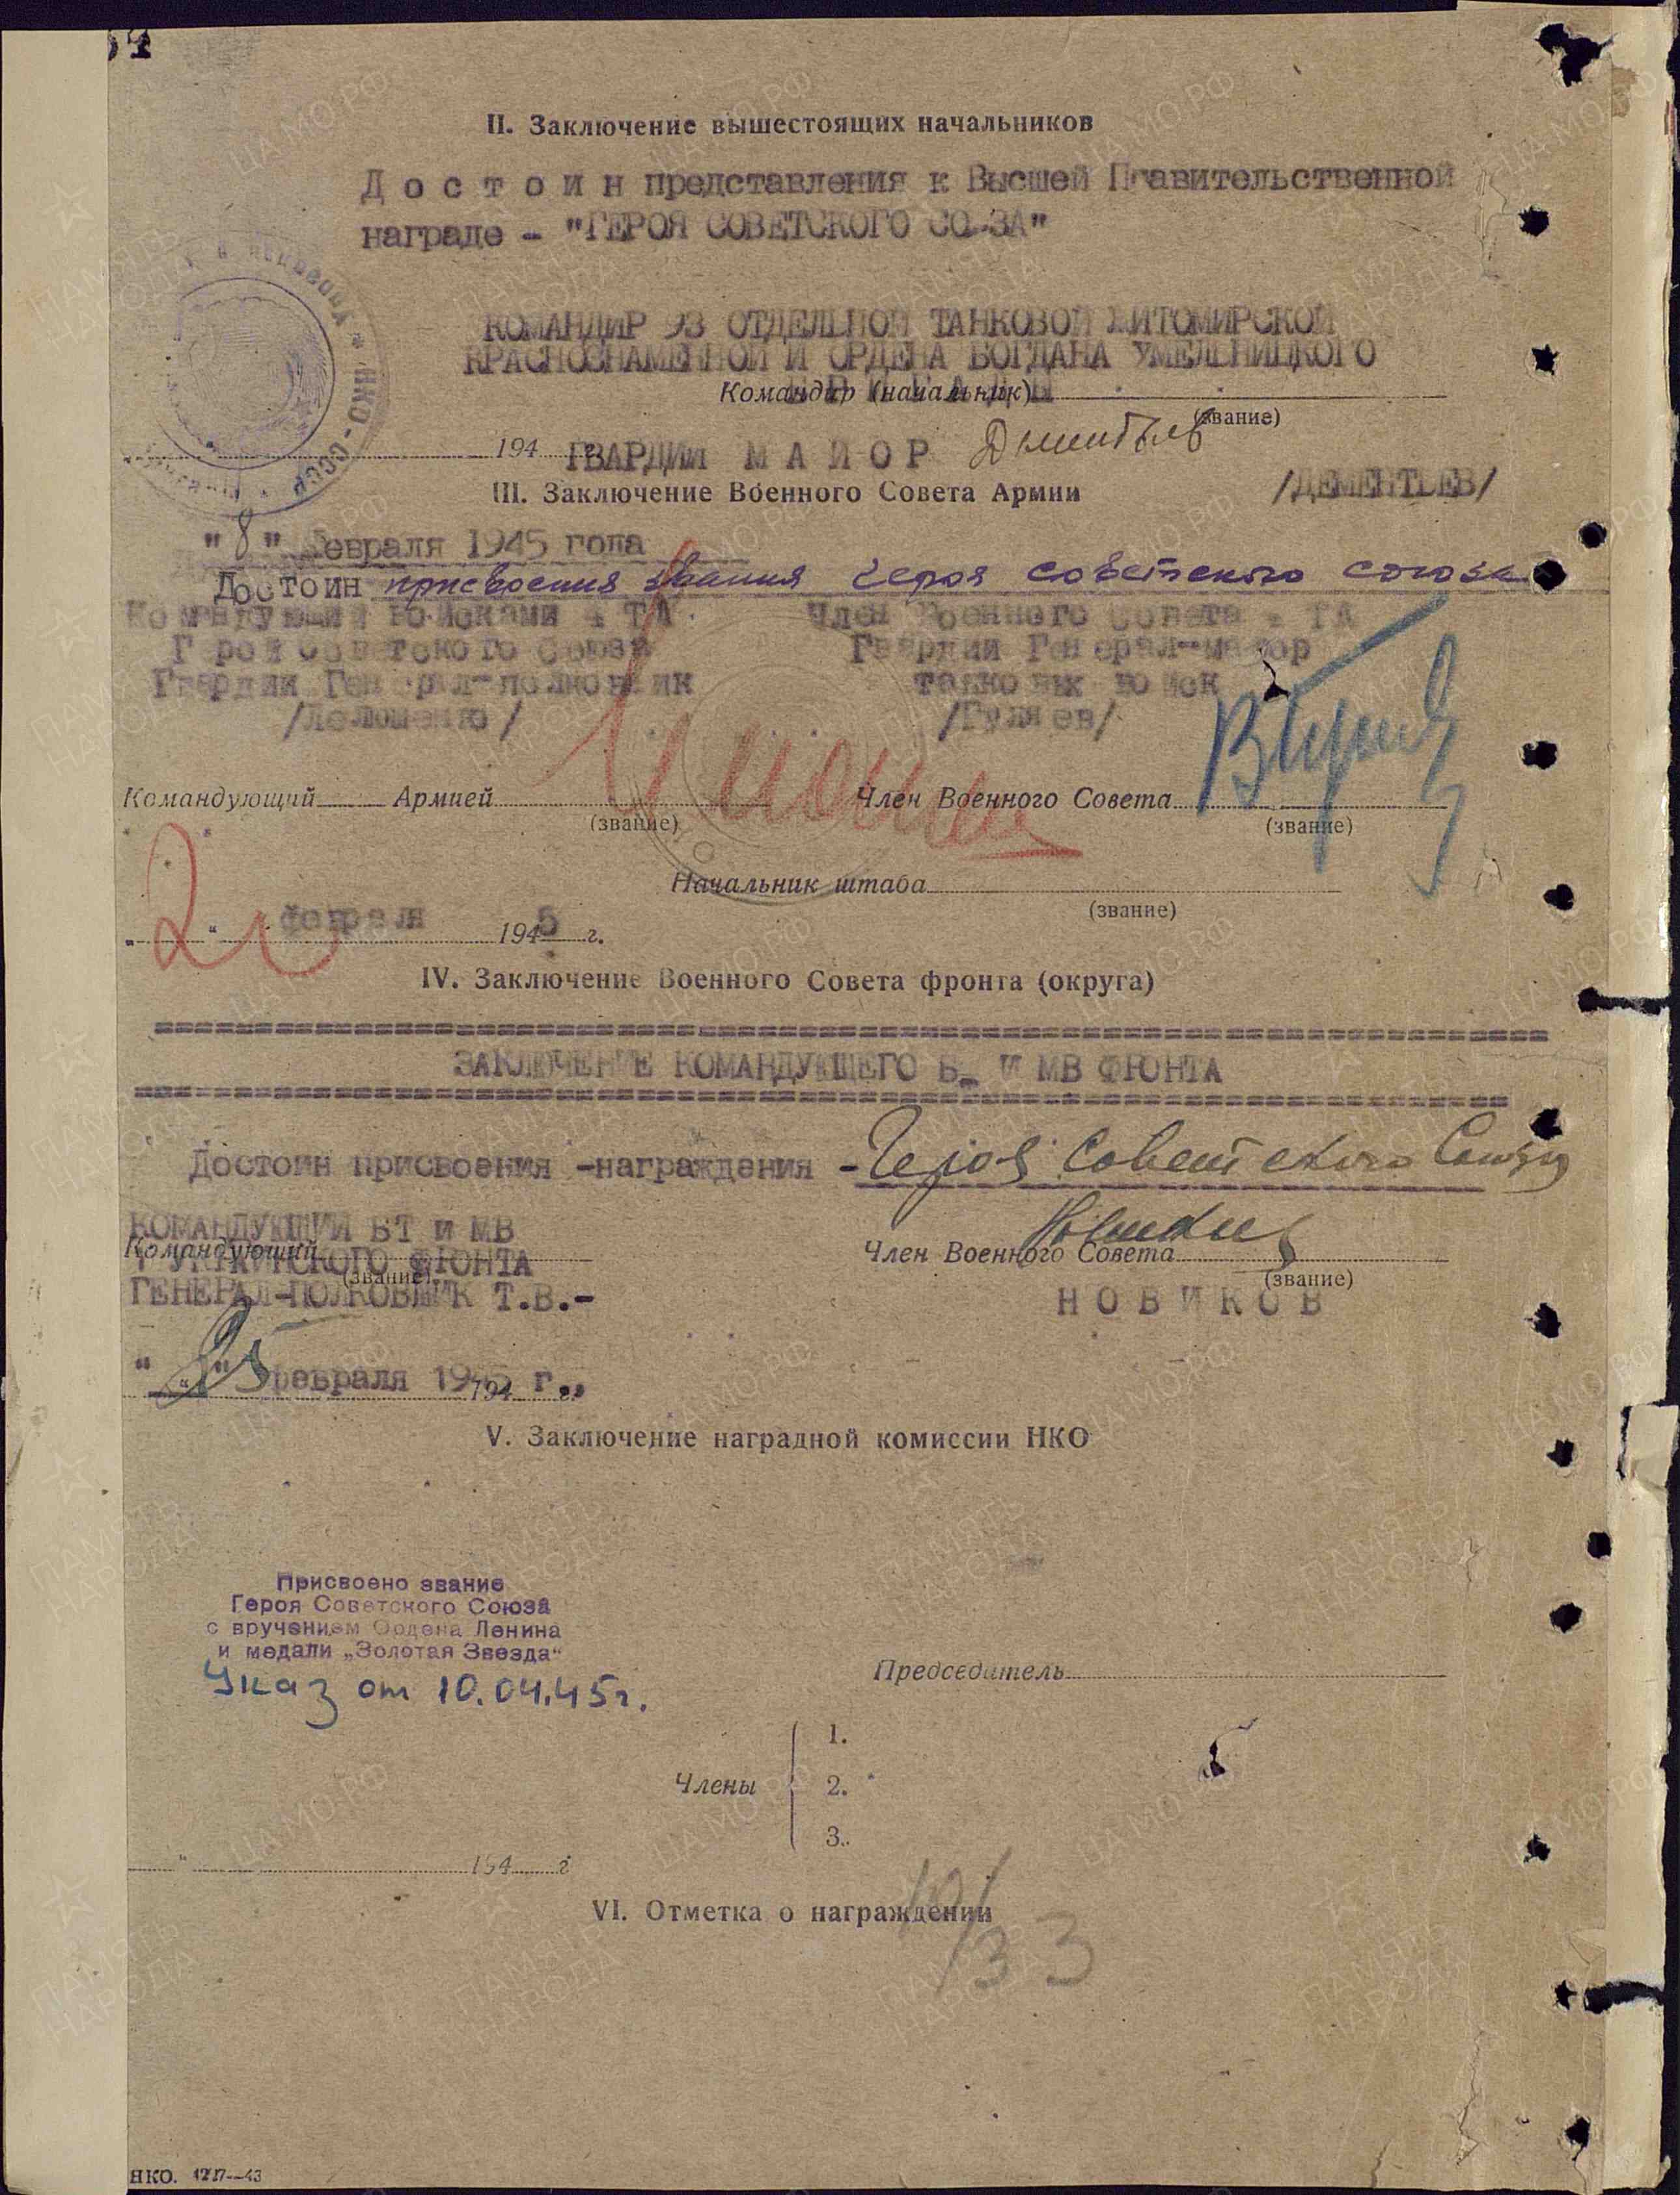 II. Заключение вышестоящих начальников
Д о с т о и н представления к Высшей Правительственной
награде - "ГЕРОЯ СОВЕТСКОГО СОЮЗА"
КОМАНДИР 93 ОТДЕЛЬНОЙ ТАНКОВОЙ ЖИТОМИРСКОЙ
КРАСНОЗНАМЕННОЙ И ОРДЕНА БОГДАНА ХМЕЛЬНИЦКОГО
Командир (начальник)
(звание)
194
ГВАРДИИ М А Й О Р
/ДЕМЕНТЬЕВ/
III. Заключение Военного Совета Армии
"8" февраля 1945 года
Достоин присвоения звания героя советского союза
Командующий войсками 4 ТА
Член Военного Совета 4 ТА
Герой Советского Союза
Гвардии Генерал-майор
Гвардии Генерал-полковник
танковых войск
/Лелюшенко/
/Гуляев/
Командующий Армией
Член Военного Совета
(звание)
(звание)
Начальник штаба
(звание)
февраля 1945 г.
IV. Заключение Военного Совета фронта (округа)
ЗАКЛЮЧЕНИЕ КОМАНДУЮЩЕГО БТ И МВ ФРОНТА
Достоин присвоения -награждения - Героя Советского Союза
КОМАНДУЮЩИЙ БТ И МВ
Командующий
Член Военного Совета
1 УКРАИНСКОГО ФРОНТА
(звание)
(звание)
ГЕНЕРАЛ-ПОЛКОВНИК Т.В.-
Н О В И К О В
"25" февраля 1945 г.
194
V. Заключение наградной комиссии НКО
Присвоено звание
Героя Советского Союза
с вручением Ордена Ленина
и медали „Золотая Звезда“
Указ от 10.04.45г.
Председатель
1.
Члены 2.
3.
194 г
VI. Отметка о награждении
33
НКО. 1217—43